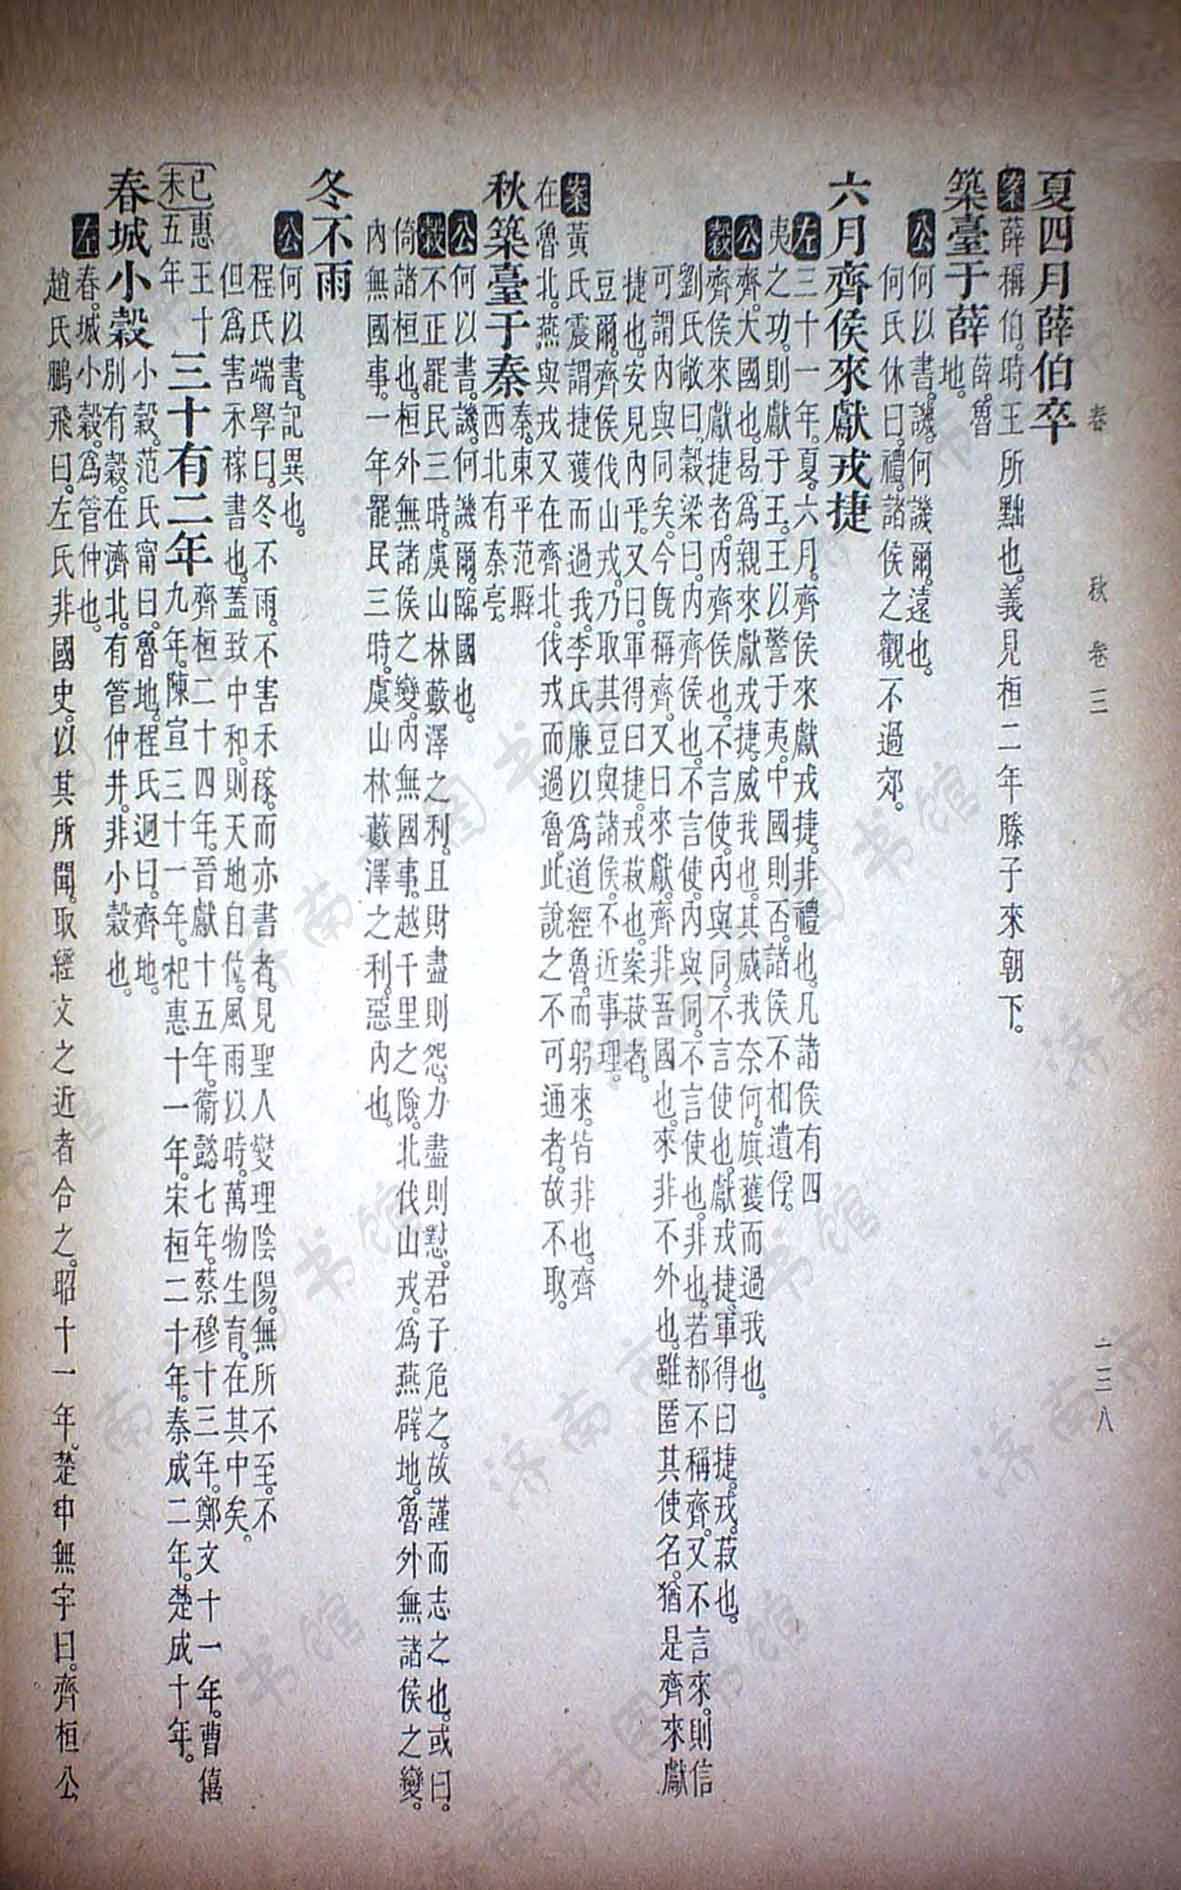 春秋 卷三 一三八
夏四月薛伯卒
案薛稱伯。時王所黜也。義見桓二年滕子來朝下。
築臺于薛薛。魯地。
公何以書。譏。何譏爾。遠也。
何氏休曰。禮。諸侯之觀不過郊。
六月齊侯來獻戎捷
左三十一年。夏。六月。齊侯來獻戎捷。非禮也。凡諸侯有四
夷之功。則獻于王。王以警于夷。中國則否。諸侯不相遺俘。
公齊。大國也。曷爲親來獻戎捷。威我也。其威我奈何。旗獲而過我也。
穀齊侯來獻捷者。內齊侯也。不言使。內與同。不言使也。獻戎捷。軍得曰捷。戎。菽也。
劉氏敞曰。穀梁曰。內齊侯也。不言使。內與同。不言使也。非也。若都不稱齊。又不言來。則信
可謂內與同矣。今旣稱齊。又曰來獻。齊非吾國也。來非不外也。雖匿其使名。猶是齊來獻
捷也。安見內乎。又曰。軍得曰捷。戎菽也。案菽者。
豆爾。齊侯伐山戎。乃取其豆與諸侯。不近事理。
案黃氏震謂捷獲而過我。李氏廉以爲道經魯。而躬來。皆非也。齊
在魯北。燕與戎又在齊北。伐戎而過魯。此說之不可通者。故不取。
秋築臺于秦秦。東平范縣
西北有秦亭。
公何以書。譏。何譏爾。臨國也。
穀不正罷民三時。虞山林藪澤之利。且財盡則怨。力盡則懟。君子危之。故謹而志之也。或曰。
倚諸桓也。桓外無諸侯之變。內無國事。越千里之險。北伐山戎。爲燕辟地。魯外無諸侯之變。
內無國事。一年罷民三時。虞山林藪澤之利。惡內也。
冬不雨
公何以書。記異也。
程氏端學曰。冬不雨。不害禾稼。而亦書者。見聖人燮理陰陽。無所不至。不
但爲害禾稼書也。蓋致中和。則天地自位。風雨以時。萬物生育。在其中矣。
己未惠王十五年三十有二年齊桓二十四年。晉獻十五年。衞懿七年。蔡穆十三年。鄭文十一年。曹僖
九年。陳宣三十一年。杞惠十一年。宋桓二十年。秦成二年。楚成十年。
春城小穀小穀。范氏甯曰。魯地。程氏迥曰。齊地。
別有穀。在濟北。有管仲井。非小穀也。
左春。城小穀。爲管仲也。
趙氏鵬飛曰。左氏非國史。以其所聞。取經文之近者合之。昭十一年。楚申無宇曰。齊桓公